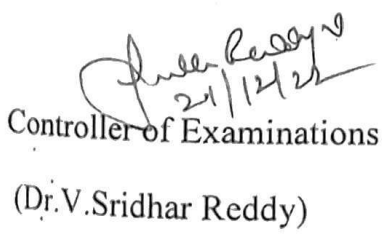 Reddy
21/12/22
Controller of Examinations
(Dr.V.Sridhar Reddy)